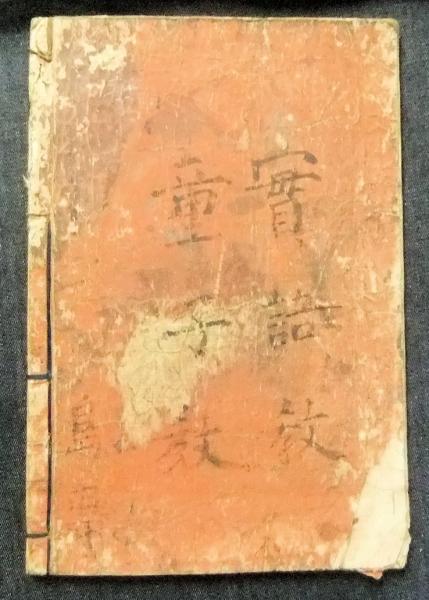 實語教
童子教